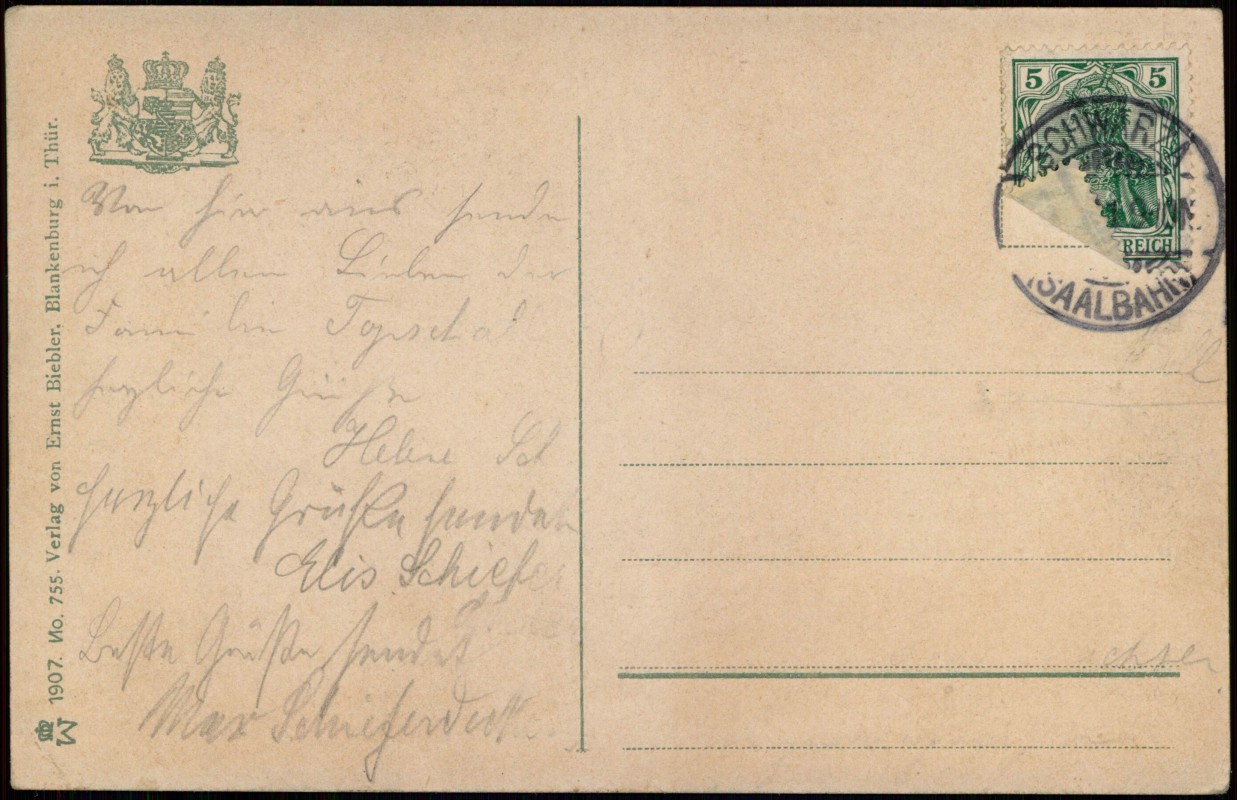 1907. No. 755. Verlag von Ernst Biebler, Blankenburg i. Thür.
Von hier aus sende
ich allen Lieben der
Familie
herzliche Grüße
Helene Sch
herzliche Grüße senden
Elis Schiefer
Beste Grüße sendet
Max Schieferdeck
5 5
REICH
SCHWARZA
(SAALBAHN)